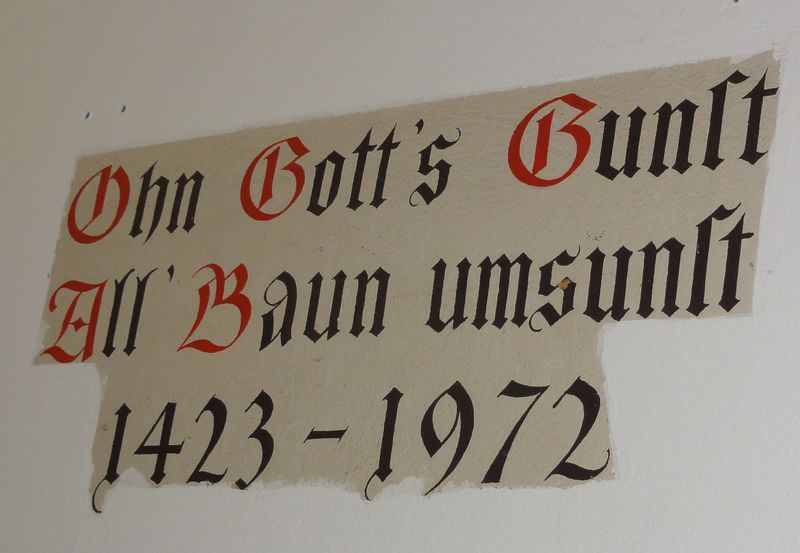 Ohn Gott's Gunſt
All' Baun umsunſt
1423 – 1972